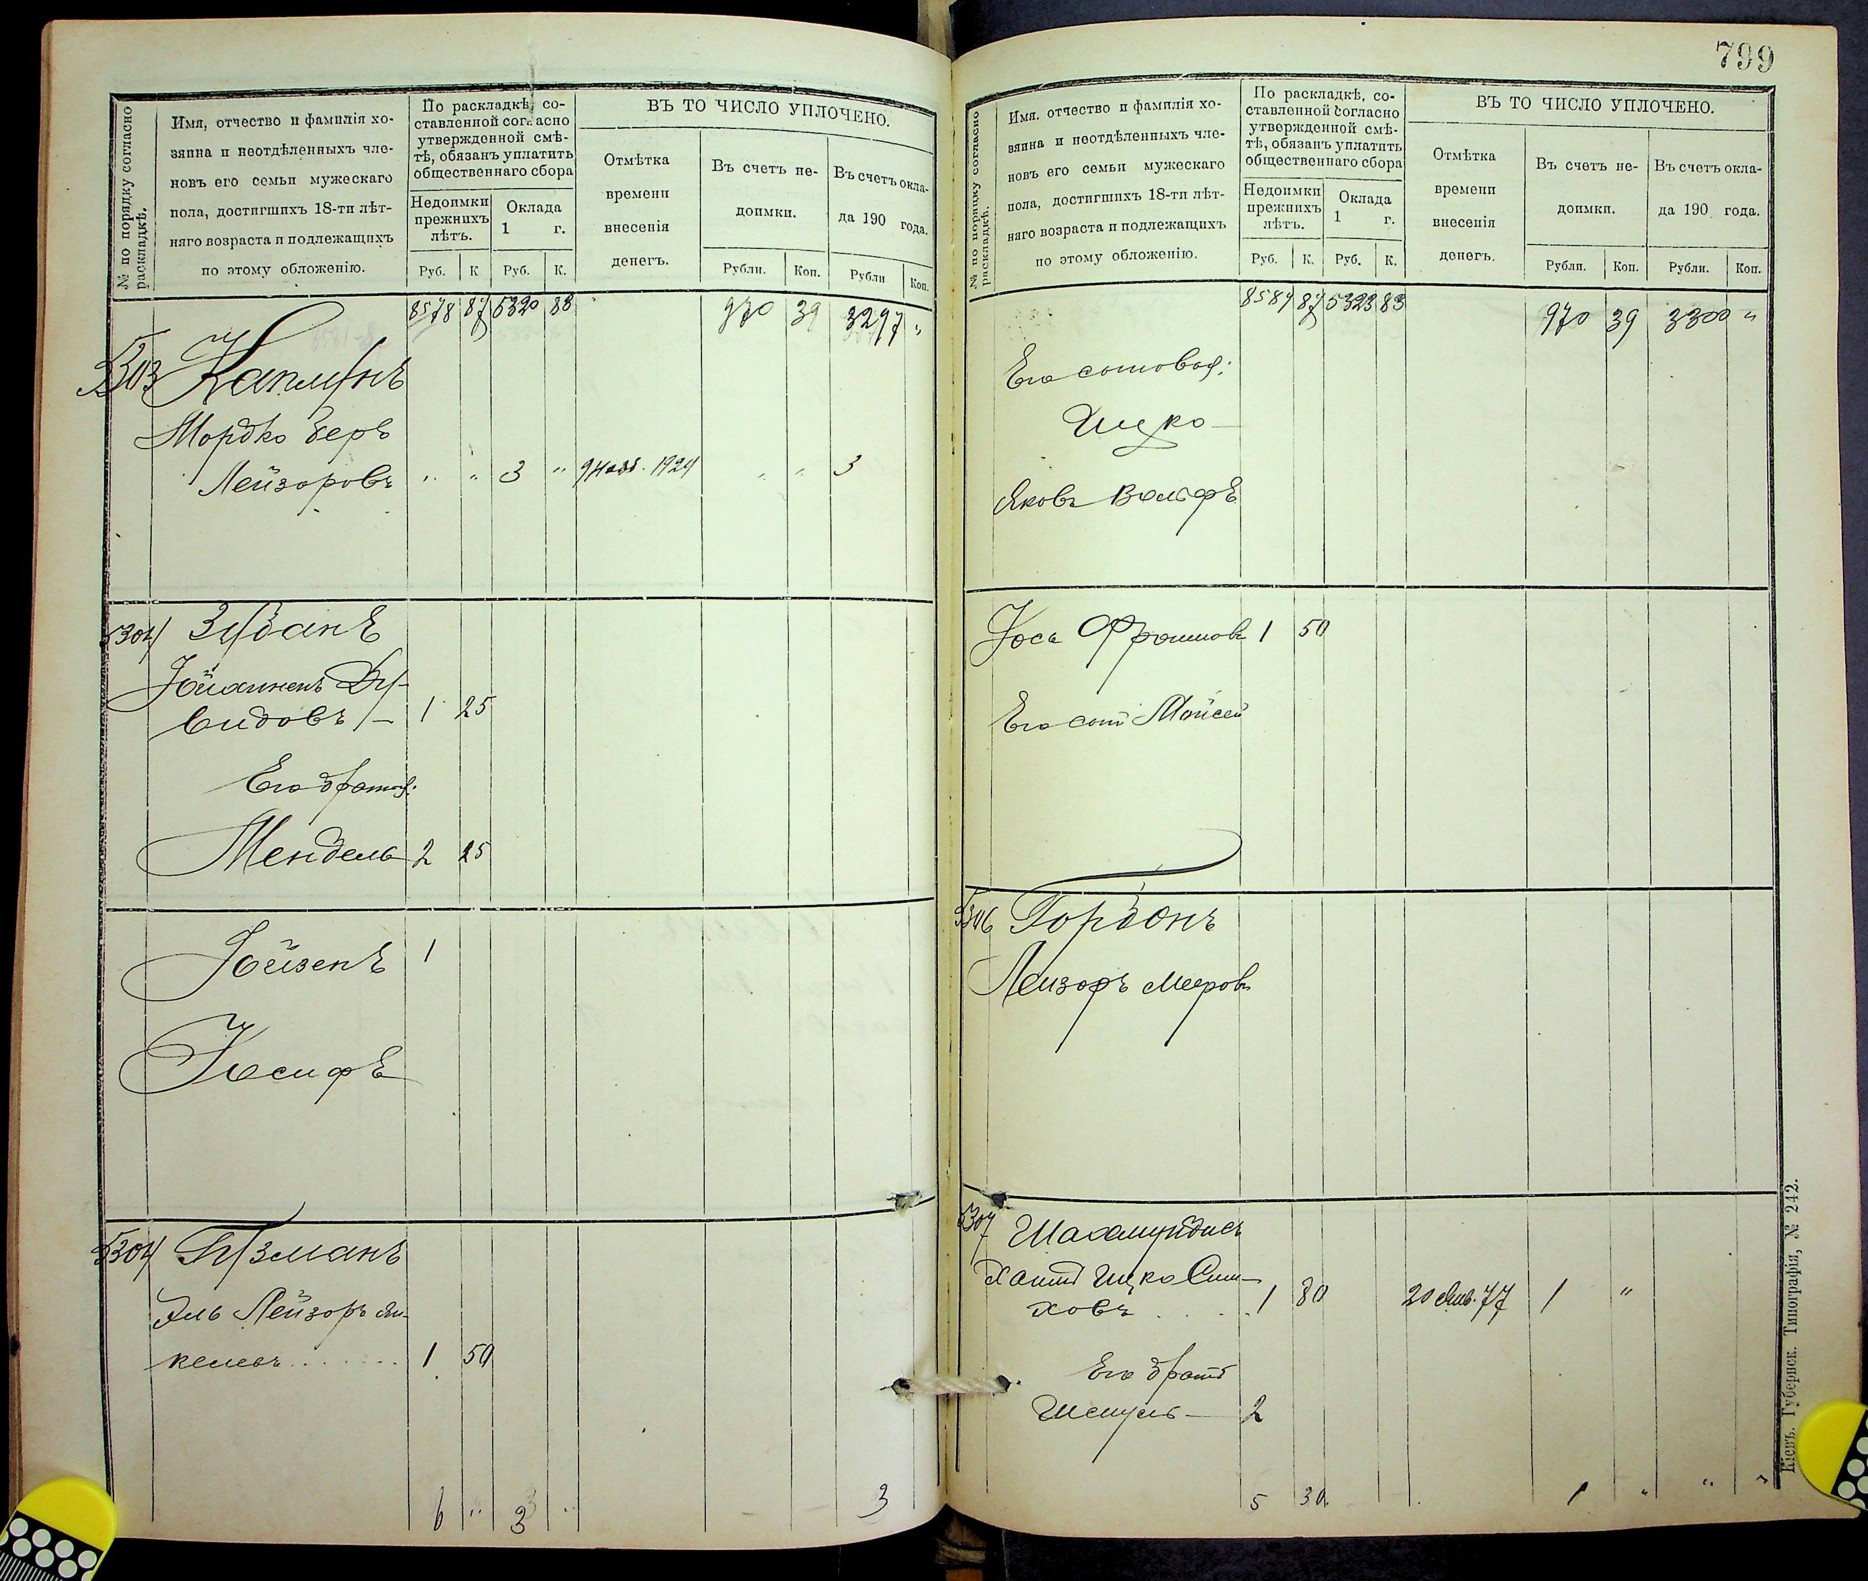 № по порядку согласно раскладкѣ.
Имя, отчество и фамилія хо-
зяина и неотдѣленныхъ чле-
новъ его семьи мужескаго
пола, достигшихъ 18-ти лѣт-
няго возраста и подлежащихъ
по этому обложенію.
По раскладкѣ, со-
ставленной согласно
утвержденной смѣ-
тѣ, обязанъ уплатить
общественнаго сбора
Недоимки
прежнихъ
лѣтъ.
Оклада
1 г.
Руб. К Руб. К.
ВЪ ТО ЧИСЛО УПЛОЧЕНО.
Отмѣтка
времени
внесенія
денегъ.
Въ счетъ не-
доимки.
Рубли. Коп.
Въ счетъ окла-
да 190 года.
Рубли Коп.
8578 87 5320 83 970 39 3297 "
5303 Капланъ
Мордко Беръ
Лейзоровъ " " 3 " 1924 " " 3
5304
1 25
Его братья:
Мендель 2 25
1
Іосифъ
5304 Гузманъ
Эль Лейзоръ Ян-
келевъ 1 50
6 " 3 " 3
799
№ по порядку согласно раскладкѣ.
Имя, отчество и фамилія хо-
зяина и неотдѣленныхъ чле-
новъ его семьи мужескаго
пола, достигшихъ 18-ти лѣт-
няго возраста и подлежащихъ
по этому обложенію.
По раскладкѣ, со-
ставленной согласно
утвержденной смѣ-
тѣ, обязанъ уплатить
общественнаго сбора
Недоимки
прежнихъ
лѣтъ.
Оклада
1 г.
Руб. К. Руб. К.
ВЪ ТО ЧИСЛО УПЛОЧЕНО.
Отмѣтка
времени
внесенія
денегъ.
Въ счетъ не-
доимки.
Рубли. Коп.
Въ счетъ окла-
да 190 года.
Рубли. Коп.
8584 87 5323 83 970 39 3300 "
Его сыновья:
Ицко
Яковъ Вольфъ
Іось Фроимовъ 1 50
Его сынъ Мойсей
5306 Гордонъ
Лейзоръ Мееровъ
5307
Хаимъ Ицко Сим-
ховъ 1 80 20 Янв. 77 1 "
Его братъ
Шмуль 2
5 30 1 " " "
Кіевъ. Губернск. Типографія, № 242.